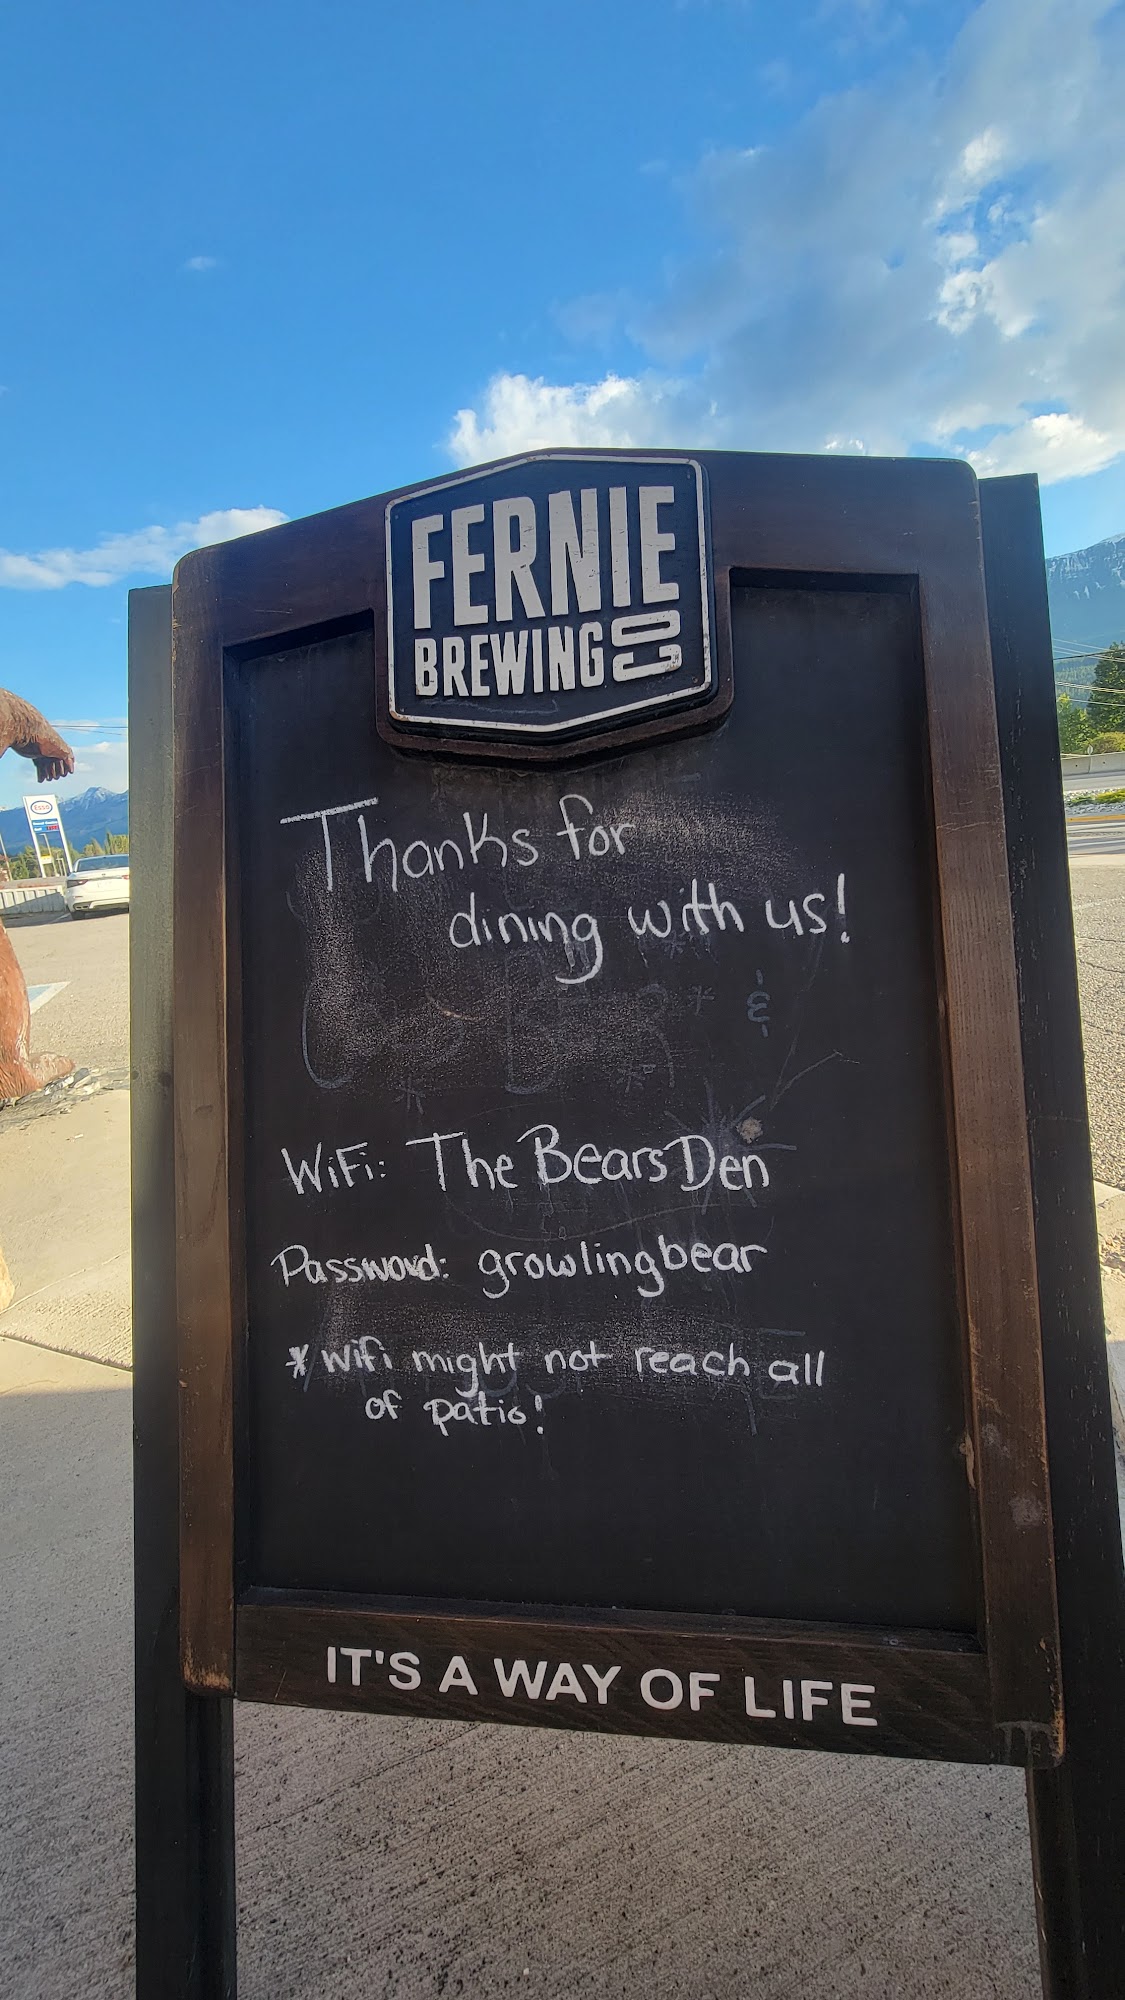 FERNIE
BREWING CO
Thanks for
dining with us!
WiFi: The Bears Den
Password: growlingbear
* wifi might not reach all
of patio!
IT'S A WAY OF LIFE
Esso